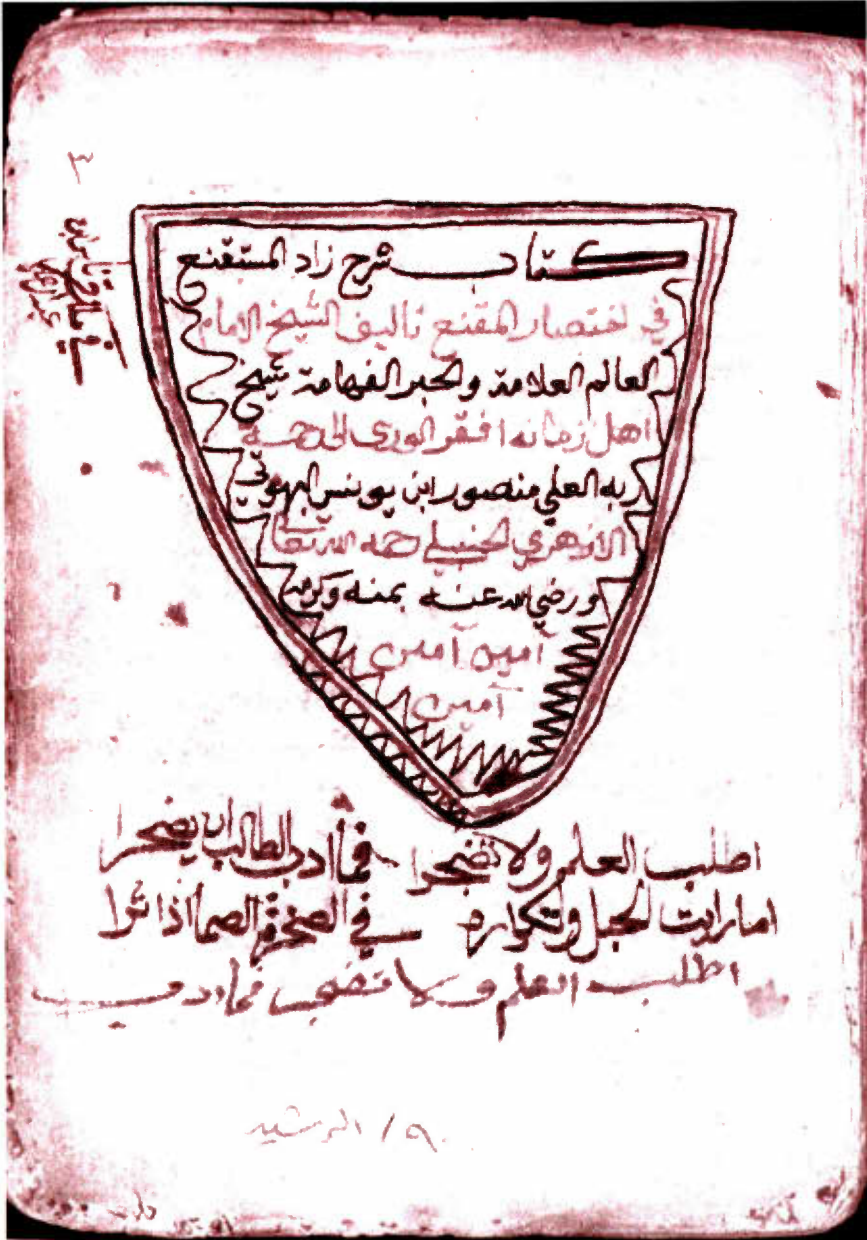 ٣
كتاب شرح زاد المستقنع
في اختصار المقنع تاليف الشيخ الامام
العالم العلامة والحبر الفهامة شيخ
اهل زمانه افقر الورى الى رحمة
ربه العلي منصور ابن يونس البهوتي
الازهري الحنبلي رحمه الله تعالى
ورضي الله عنه بمنه وكرمه
آمين آمين
آمين
اطلب العلم ولا تضجرا فما ادب الطالب ان يضجرا
اما رايت الحبل وتكراره في الصخرة الصما اذا ثرا
اطلب العلم ولا تضجر فما ادب
٩٠ / الرشيد